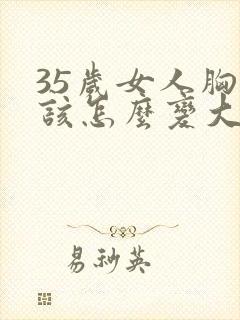 35歲女人胸
該怎麼變大
易秘英